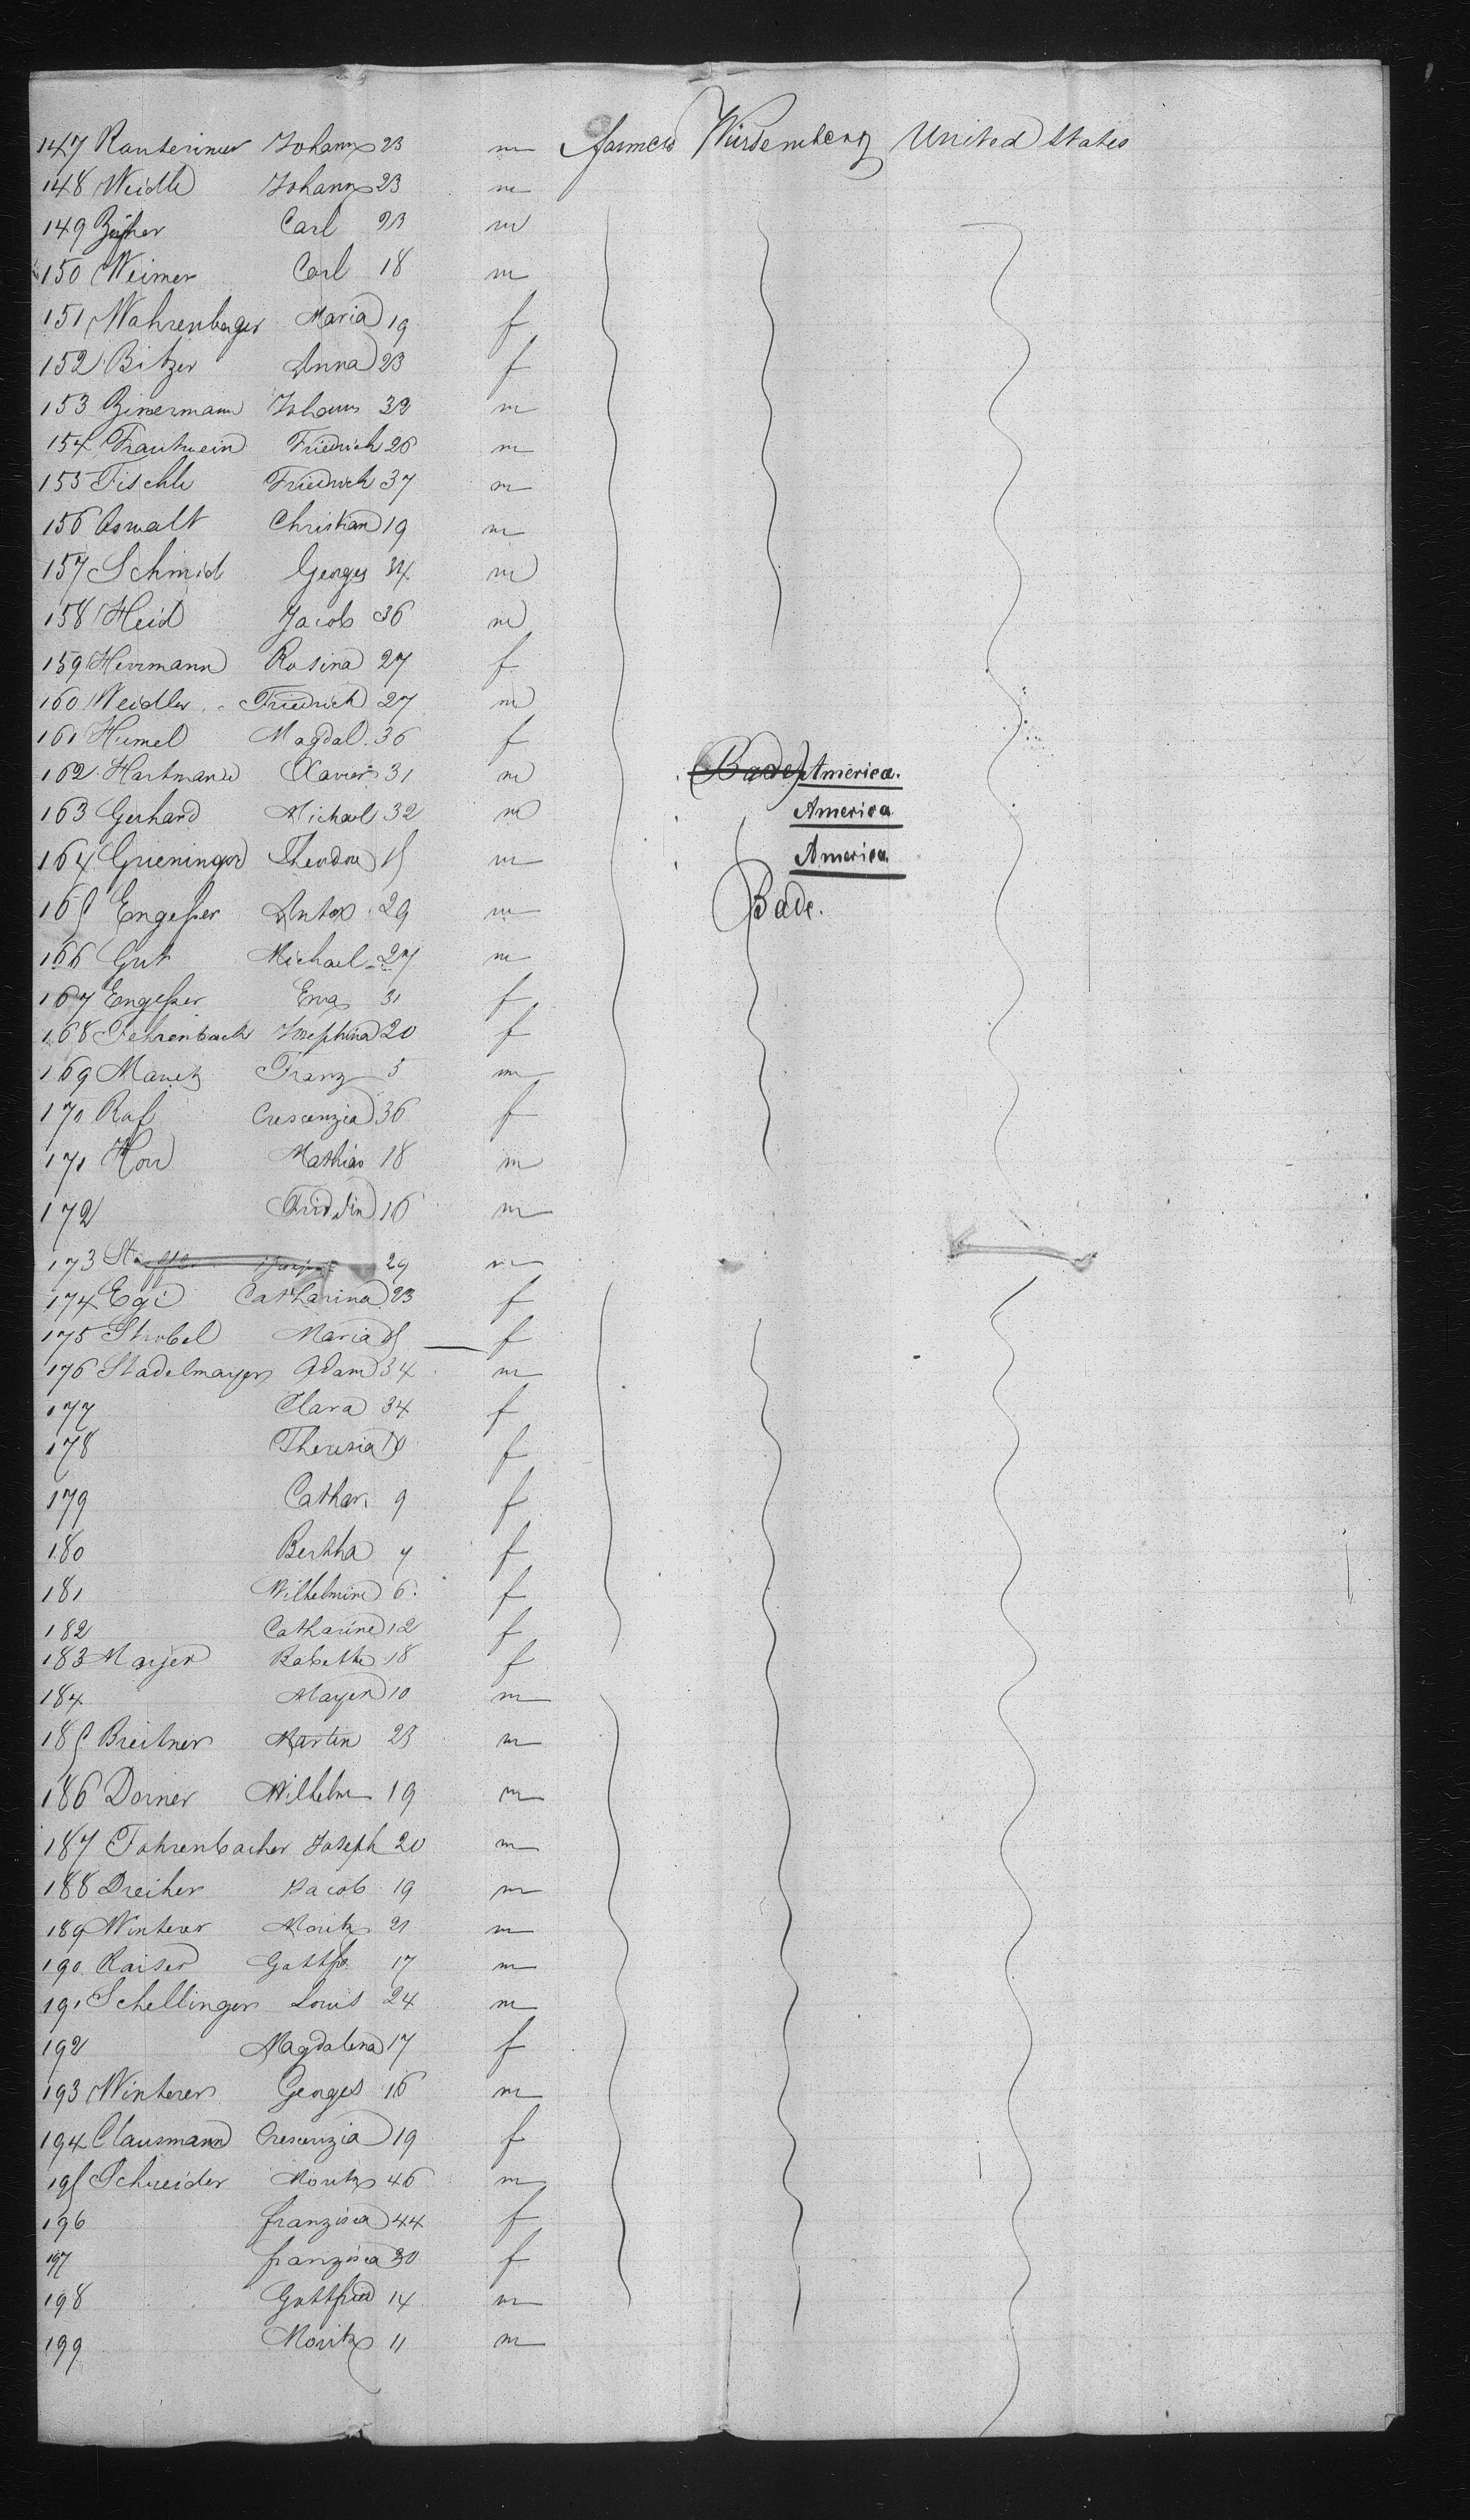 147 Johann 23 m farmers Würdemberg United States
148 Weidle Johann 23 m
149 Carl 23 m
150 Weimer Carl 18 m
151 Wahrenberger Maria 19 f
152 Bitzer Anna 23 f
153 Zimermann Johann 32 m
154 Trautwein Friedrich 26 m
155 Fischle Friedrich 37 m
156 Oswalt Christian 19 m
157 Schmid Georges 34 m
158 Heid Jacob 36 m
159 Herrmann Rosina 27 f
160 Weidler Friedrich 27 m
161 Humel Magdal. 36 f
162 Hartmann Xavier 31 m Bade America.
163 Gerhard Michael 32 m America
164 Grieninger Theodor 15 m America
165 Engeßer Anton 29 m Bade.
166 Gut Michael 27 m
167 Engeßer Eva 31 f
168 Fehrenbach Josephina 20 f
169 Franz 5 m
170 Crescenzia 36 f
171 Mathias 18 m
172 Fridolin 16 m
173 29 m
174 Egi Catharina 23 f
175 Strobel Maria f
176 Stadelmayer Adam 34 m
177 Clara 34 f
178 Theresia 10 f
179 Cathar. 9 f
180 Bertha 7 f
181 Wilhelmine 6. f
182 Catharine 12 f
183 Mayer Babette 18 f
184 Mayer 10 m
185 Breitner Martin 23 m
186 Dorner Wilhelm 19 m
187 Fahrenbacher Joseph 20 m
188 Dreiher Jacob 19 m
189 Winterer Moritz 21 m
190 Kaiser 17 m
191 Schellinger Louis 24 m
192 Magdalena 17 f
193 Winterer Georges 16 m
194 Clausmann Crescenzia 19 f
195 Schneider Moritz 46 m
196 franzisca 44 f
197 franzisca 30 f
198 Gottfried 14 m
199 Moritz 11 m